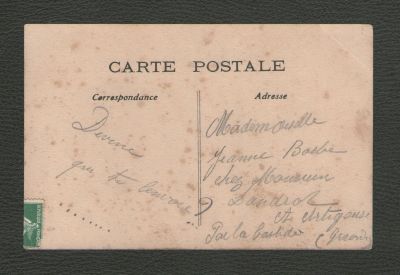 CARTE POSTALE
Correspondance
Adresse
Devine
qui te l'envoie ?
........
Mademoiselle
Jeanne
chez
à Artigues
Par la Bastide (Gironde